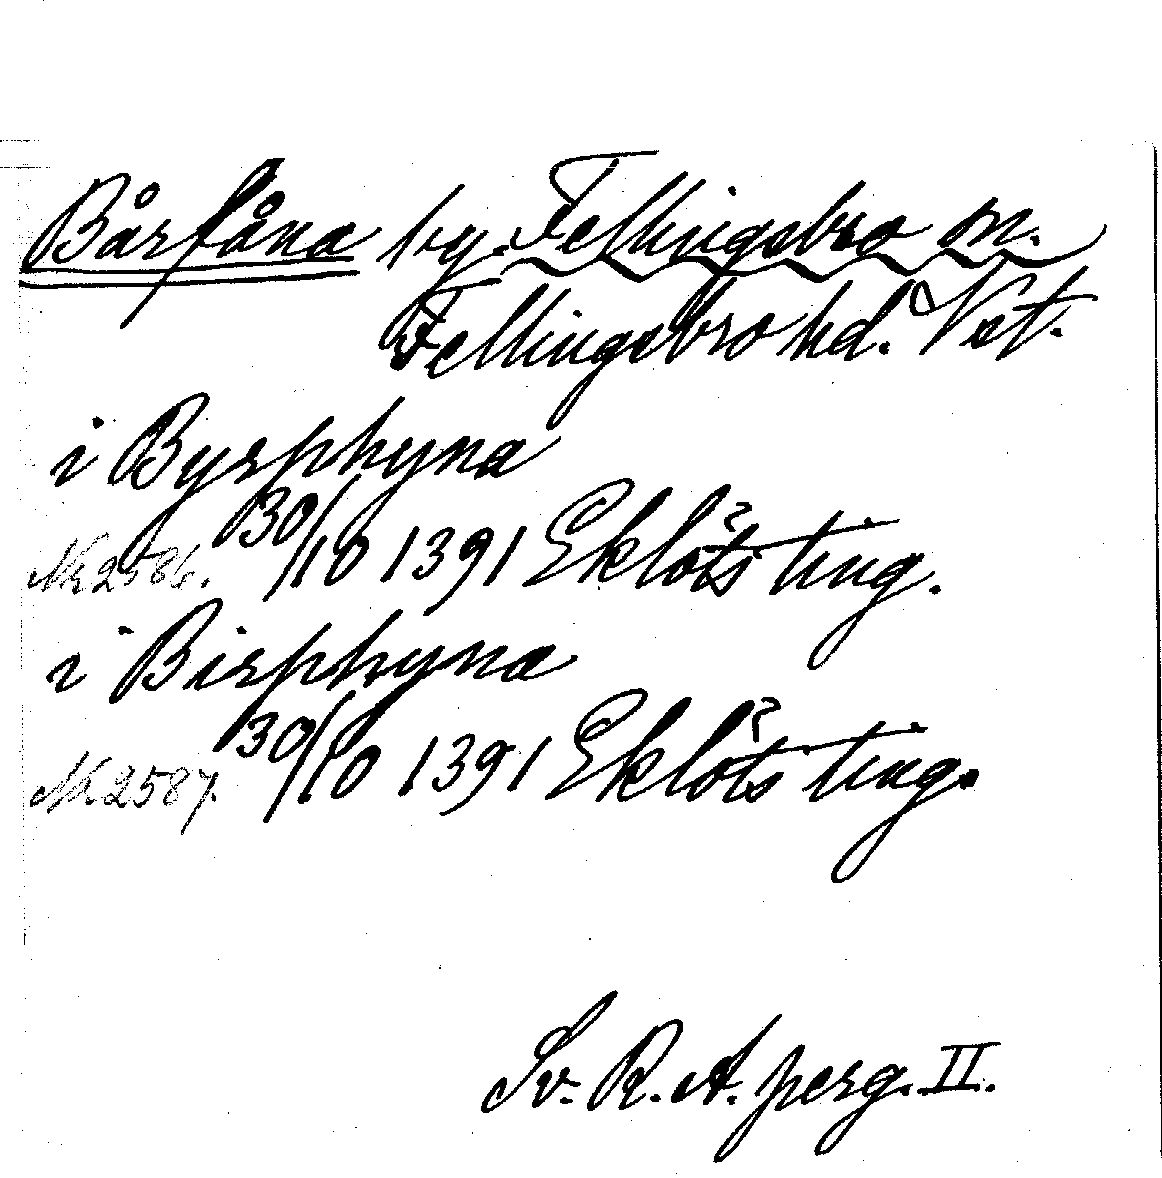 Bårfåna by. Fellingsbro sn.
Fellingsbro hd. Vst.
i Byrphyna
Nr 2586. 30/10 1391 Eklöts? ting.
i Birphyna
Nr 2587. 30/10 1391 Eklöts? ting.
Sv. R. A. perg. II.